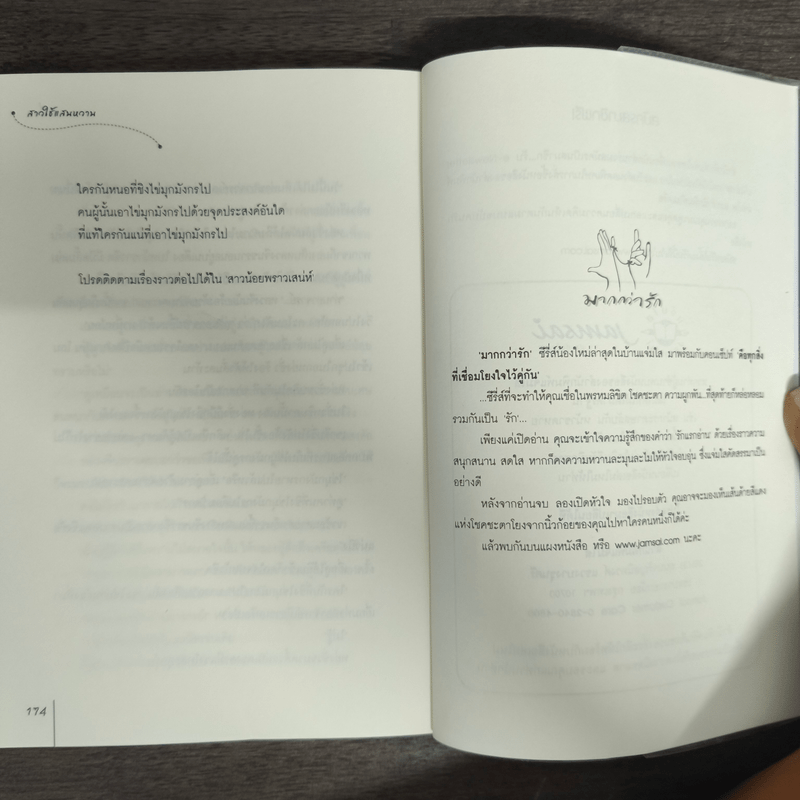 สาวใช้แสนหวาน
ใครกันหนอที่ชิงไข่มุกมังกรไป
คนผู้นั้นเอาไข่มุกมังกรไปด้วยจุดประสงค์อันใด
ที่แท้ใครกันแน่ที่เอาไข่มุกมังกรไป
โปรดติดตามเรื่องราวต่อไปได้ใน 'สาวน้อยพราวเสน่ห์'
174
มากกว่ารัก
'มากกว่ารัก' ซีรี่ส์น้องใหม่ล่าสุดในบ้านแจ่มใส มาพร้อมกับคอนเซ็ปท์ 'คือทุกสิ่ง
ที่เชื่อมโยงใจไว้คู่กัน'
...ซีรี่ส์ที่จะทำให้คุณเชื่อในพรหมลิขิต โชคชะตา ความผูกพัน...ที่สุดท้ายก็หล่อหลอม
รวมกันเป็น 'รัก'...
เพียงแค่เปิดอ่าน คุณจะเข้าใจความรู้สึกของคำว่า 'รักแรกอ่าน' ด้วยเรื่องราวความ
สนุกสนาน สดใส หากก็คงความหวานละมุนละไมให้หัวใจอบอุ่น ซึ่งแจ่มใสคัดสรรมาเป็น
อย่างดี
หลังจากอ่านจบ ลองเปิดหัวใจ มองไปรอบตัว คุณอาจจะมองเห็นเส้นด้ายสีแดง
แห่งโชคชะตาโยงจากนิ้วก้อยของคุณไปหาใครคนหนึ่งก็ได้ค่ะ
แล้วพบกันบนแผงหนังสือ หรือ www.jamsai.com นะคะ